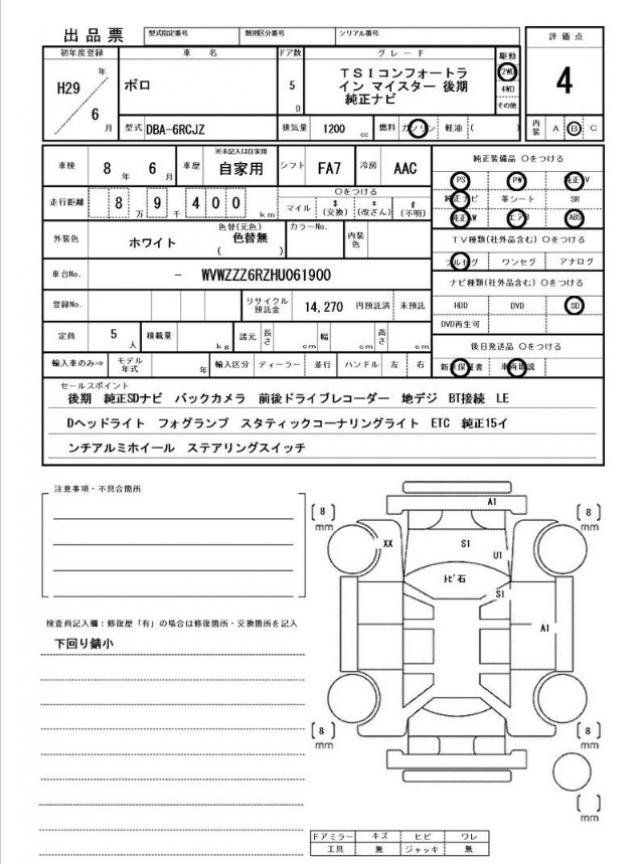 出品票 型式指定番号 類別区分番号 シリアル番号
初年度登録 車名 ドア数 グレード 駆動 評価点
H29 年 6 月
ポロ
5 D
TSIコンフォートラ
イン マイスター 後期
純正ナビ
2WD
4WD
その他
4
型式 DBA-6RCJZ 排気量 1200 cc 燃料 ガソリン 軽油 ( ) 内装 A B C
車検 8 年 6 月 車歴 ※未記入は自家用 自家用 シフト FA7 冷房 AAC
走行距離 8 万 9 千 4 0 0 km
○をつける
マイル $(交換) *(改ざん) #(不明)
外装色 ホワイト 色替(元色) 色替無 ( ) カラーNo. 内装色
車台No. - WVWZZZ6RZHU061900
登録No. リサイクル預託金 14,270 円預託済 未預託
定員 5 人 積載量 kg 諸元 長さ cm 幅 cm 高さ cm
輸入車のみ⇒ モデル年式 年 輸入区分 ディーラー 並行 ハンドル 左 右
純正装備品 ○をつける
PS PW 純正TV
純正ナビ 革シート SR
純正AW エアB ABS
TV種類(社外品含む) ○をつける
フルセグ ワンセグ アナログ
ナビ種類(社外品含む) ○をつける
HDD DVD SD
DVD再生可
後日発送品 ○をつける
新車保証書 車両取説
セールスポイント
後期 純正SDナビ バックカメラ 前後ドライブレコーダー 地デジ BT接続 LE
Dヘッドライト フォグランプ スタティックコーナリングライト ETC 純正15イ
ンチアルミホイール ステアリングスイッチ
注意事項・不具合箇所
検査員記入欄：修復歴「有」の場合は修復箇所・交換箇所を記入
下回り錆小
A1
[8] mm [8] mm
XX S1
U1
トビ石
S1
A1
[8] mm [8] mm
[ ] mm
ドアミラー キズ ヒビ ワレ
工具 無 ジャッキ 無